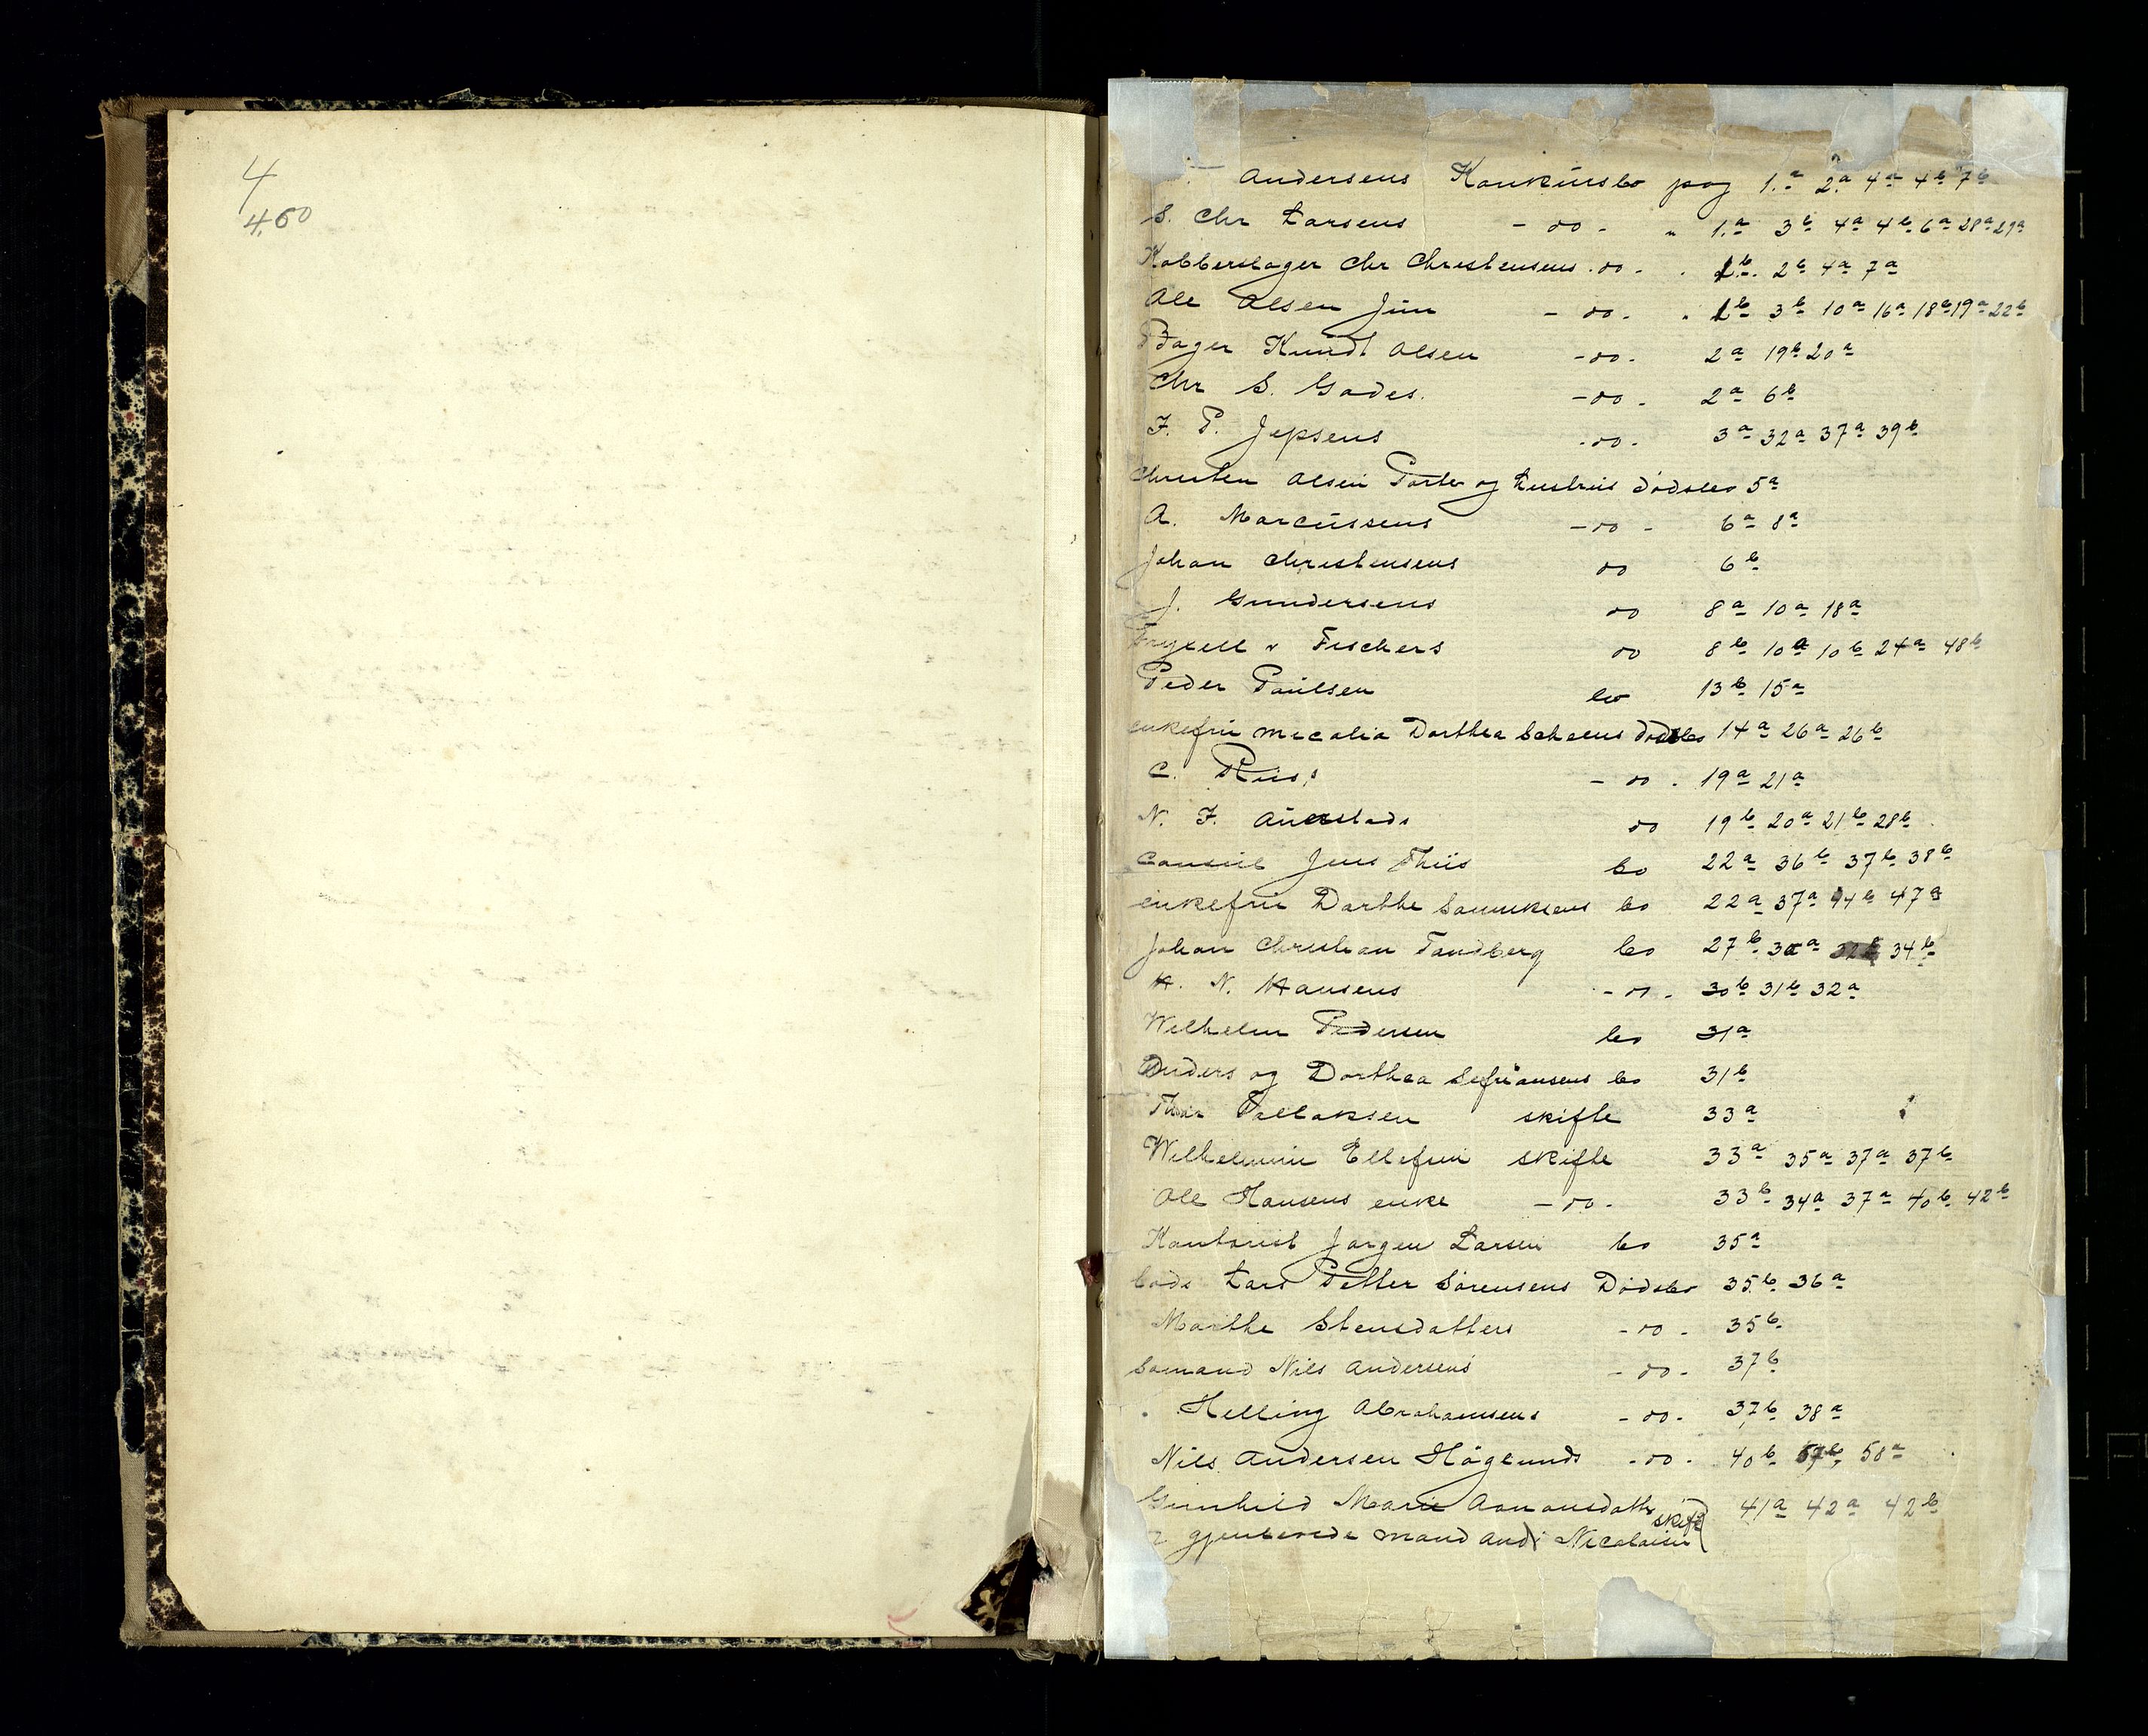 4
4.50
Andersens Konkursbo pag 1.a 2.a 4a 4b 7b
S. Chr Larsens - do - " 1.a 3b 4a 4b 6a 28a 29a
Kobberslager Chr Christensens . do - . 1b. 2b 4a 7a
Ole Olsen Jun - do - . 1b 3b 10a 16a 18b 19a 22b
Bager Knudt Olsen - do - 2a 19b 20a
Chr S. Gades. - do - 2a 6b
F. P. Jepsens - do - 3a 32a 37a 39b
Christen Olsen Porter og hustrus dødsbo 5a
A. Marcussens - do - 6a 8a
Johan Christensens do 6b
J. Gundersens do 8a 10a 18a
Fryxell & Fischers do 8b 10a 10b 24a 48b
Peder Paulsen bo 13b 15a
enkefru Micalia Dorthea Scheens dødsbo 14a 26a 26b
C. Riis's - do - 19a 21a
N. F. Auerstads do 19b 20a 21b 28b
Consul Jens Thiis bo 22a 36b 37b 38b
enkefru Dorthe Sannesens bo 22a 37a 44b 47a
Johan Christian Tandberg bo 27b 30a 34b
H. N. Hansens - do - 30b 31b 32a
Wilhelm Pedersen bo 31a
Anders og Dorthea Sefriansens bo 31b
Thor Tallaksen skifte 33a
Wilhelmine Ellefsen skifte 33a 35a 37a 37b
Ole Hansens enke - do - 33b 34a 37a 40b 42b
Kontorist Jørgen Larsen bo 35a
Lods Lars Petter Sørensens Dødsbo 35b 36a
Marthe Stensdatters - do - 35b
Sømand Nils Andersens - do - 37b
Helling Abrahamsens - do - 37b 38a
Nils Andersen Höglunds - do - 40b 57b 58a
Gunhild Marie Aanonsdatter skifte 41a 42a 42b
gjenlevede mand And Nicolaisen